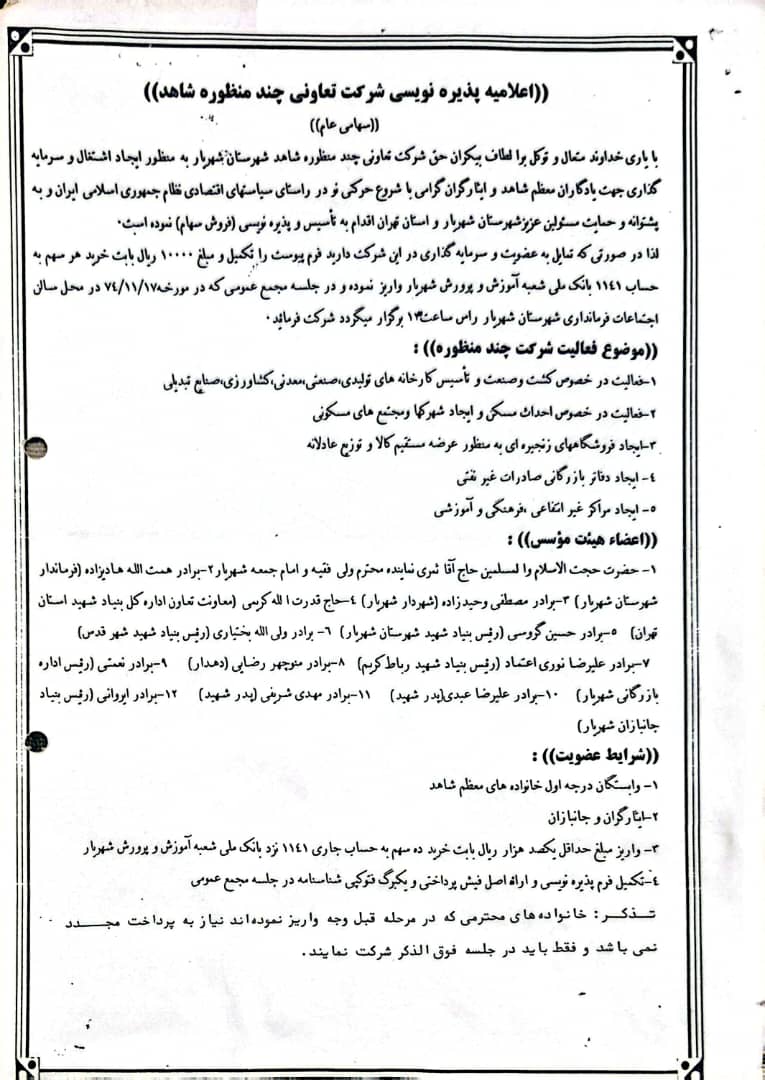 ((اعلامیه پذیره نویسی شرکت تعاونی چند منظوره شاهد))
((سهامی عام))
با یاری خداوند متعال و توکل برا لطاف بیکران حق شرکت تعاونی چند منظوره شاهد شهرستان شهریار به منظور ایجاد اشتغال و سرمایه
گذاری جهت یادگاران معظم شاهد و ایثارگران گرامی با شروع حرکتی نو در راستای سیاستهای اقتصادی نظام جمهوری اسلامی ایران و به
پشتوانه و حمایت مسئولین عزیزشهرستان شهریار و استان تهران اقدام به تأسیس و پذیره نویسی (فروش سهام) نموده است.
لذا در صورتی که تمایل به عضویت و سرمایه گذاری در این شرکت دارید فرم پیوست را تکمیل و مبلغ ۱۰۰۰۰ ریال بابت خرید هر سهم به
حساب ۱۱۴۱ بانک ملی شعبه آموزش و پرورش شهریار واریز نموده و در جلسه مجمع عمومی که در مورخه ۷۴/۱۱/۱۷ در محل سالن
اجتماعات فرمانداری شهرستان شهریار راس ساعت برگزار میگردد شرکت فرمائید.
((موضوع فعالیت شرکت چند منظوره)) :
۱-فعالیت در خصوص کشت وصنعت و تأسیس کارخانه های تولیدی،صنعتی،معدنی،کشاورزی،صنایع تبدیلی
۲-فعالیت در خصوص احداث مسکن و ایجاد شهرکها ومجتمع های مسکونی
۳-ایجاد فروشگاههای زنجیره ای به منظور عرضه مستقیم کالا و توزیع عادلانه
۴- ایجاد دفاتر بازرگانی صادرات غیر نفتی
۵- ایجاد مراکز غیر انتفاعی ،فرهنگی و آموزشی
((اعضاء هیئت مؤسس)) :
۱- حضرت حجت الاسلام والمسلمین حاج آقا ثمری نماینده محترم ولی فقیه و امام جمعه شهریار ۲-برادر همت الله هادیزاده (فرماندار
شهرستان شهریار) ۳-برادر مصطفی وحیدزاده (شهردار شهریار) ۴-حاج قدرت الله کریمی (معاونت تعاون اداره کل بنیاد شهید استان
تهران) ۵-برادر حسین گروسی (رئیس بنیاد شهید شهرستان شهریار) ۶- برادر ولی الله بختیاری (رئیس بنیاد شهید شهر قدس)
۷-برادر علیرضا نوری اعتماد (رئیس بنیاد شهید رباط کریم) ۸-برادر منوچهر رضایی (دهدار) ۹-برادر نعمتی (رئیس اداره
بازرگانی شهریار) ۱۰-برادر علیرضا عبدی(پدر شهید) ۱۱-برادر مهدی شریفی (پدر شهید) ۱۲-برادر ایروانی (رئیس بنیاد
جانبازان شهریار)
((شرایط عضویت)) :
۱- وابستگان درجه اول خانواده های معظم شاهد
۲-ایثارگران و جانبازان
۳- واریز مبلغ حداقل یکصد هزار ریال بابت خرید ده سهم به حساب جاری ۱۱۴۱ نزد بانک ملی شعبه آموزش و پرورش شهریار
۴-تکمیل فرم پذیره نویسی و ارائه اصل فیش پرداختی و یکبرگ فتوکپی شناسنامه در جلسه مجمع عمومی
تـذکـر : خانواده های محترمی که در مرحله قبل وجه واریز نموده‌اند نیاز به پرداخت مجـدد
نمی باشد و فقط باید در جلسه فوق الذکر شرکت نمایند.